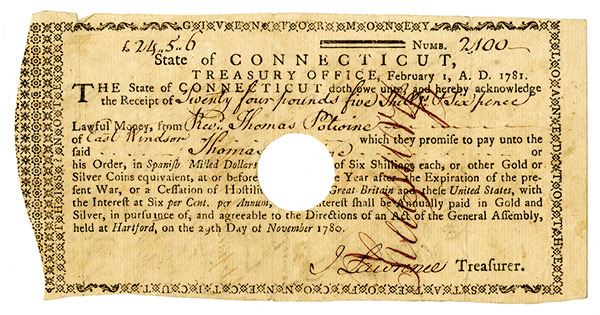 GIVEN FOR MONEY
£24.5.6 NUMB. 2100
State of CONNECTICUT,
TREASURY OFFICE, February 1, A. D. 1781.
THE State of CONNECTICUT doth owe unto, and hereby acknowledge
the Receipt of Twenty four pounds five Shills & Six pence
Lawful Money, from Revd. Thomas Potwine
of East Windsor which they promise to pay unto the
said Thomas or
his Order, in Spanish Milled Dollars of Six Shillings each, or other Gold or
Silver Coins equivalent, at or before Year after the Expiration of the pre-
sent War, or a Cessation of Hostili Great Britain and these United States, with
the Interest at Six per Cent. per Annum, terest shall be Annually paid in Gold and
Silver, in pursuance of, and agreeable to the Directions of an Act of the General Assembly,
held at Hartford, on the 29th Day of November 1780.
J Lawrence Treasurer.
STATE OF CONNECTICUT